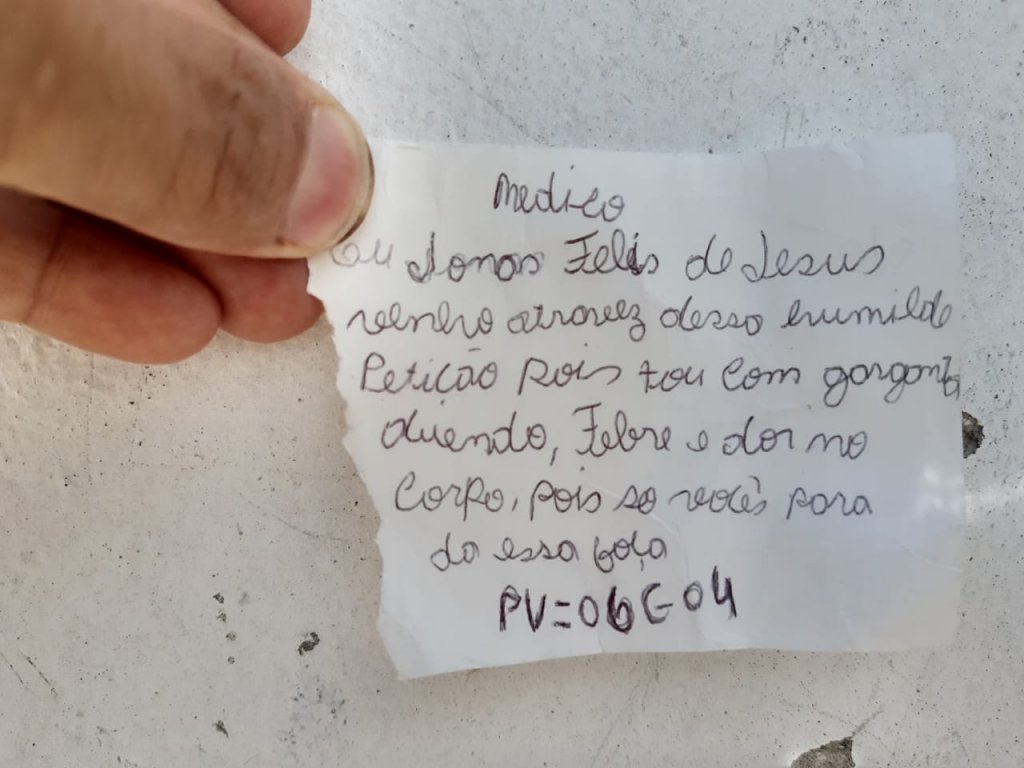 Medico
Eu Jonas Felis de Jesus
venho atravez desso humilde
Petição pois tou com garganta
duendo, Febre e dor no
Corpo, pois so vocês para
da essa força
PV=06 C 04